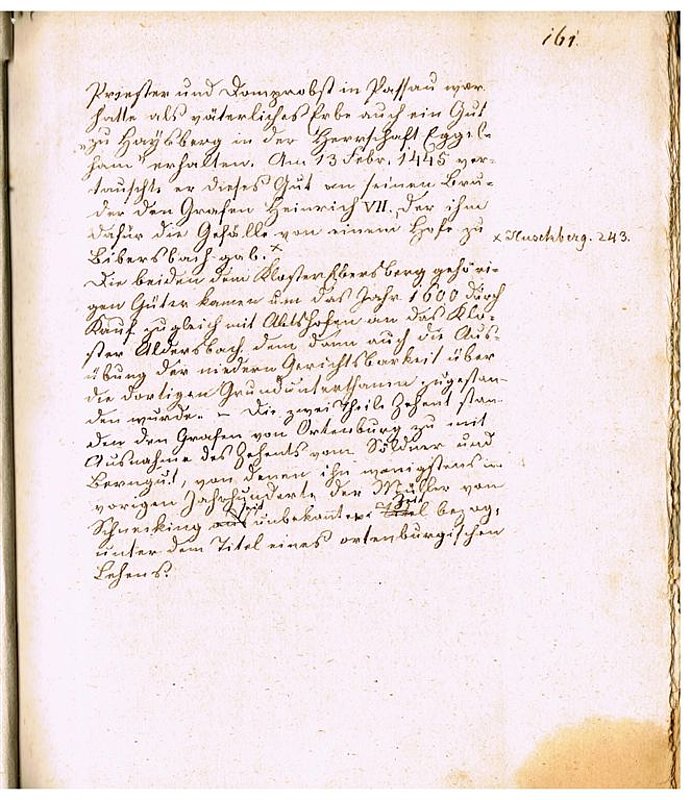 161.
Priester und Domprobst in Passau war
hatte als väterliches Erbe auch ein Gut
„zu Haÿsberg in der Herrschaft Eggel-
ham“ erhalten. Am 13 Febr. 1445 ver-
tauschte er dieses Gut an seinen Bru-
der den Grafen Heinrich VII. der ihm
dafür die Gefälle von einem Hofe zu
Bibersbach gab. x
x Huschberg. 243.
Die beiden dem Kloster Ebersberg gehöri-
gen Güter kamen um das Jahr 1600 durch
Kauf zugleich mit Abtshofen an das Klo-
ster Aldersbach, dem dann auch die Aus-
übung der niedern Gerichtsbarkeit über
die dortigen Grundunterthanen zugestan-
den wurde. – Die zwei Theile Zehent stan-
den den Grafen von Ortenburg zu mit
Ausnahme des Zehents vom Söldner und
Berngut, von denen ihn wenigstens im
vorigen Jahrhunderte der Müller von
Schneiking seit unbekannter Zeit bezog,
unter dem Titel eines ortenburgischen
Lehens.